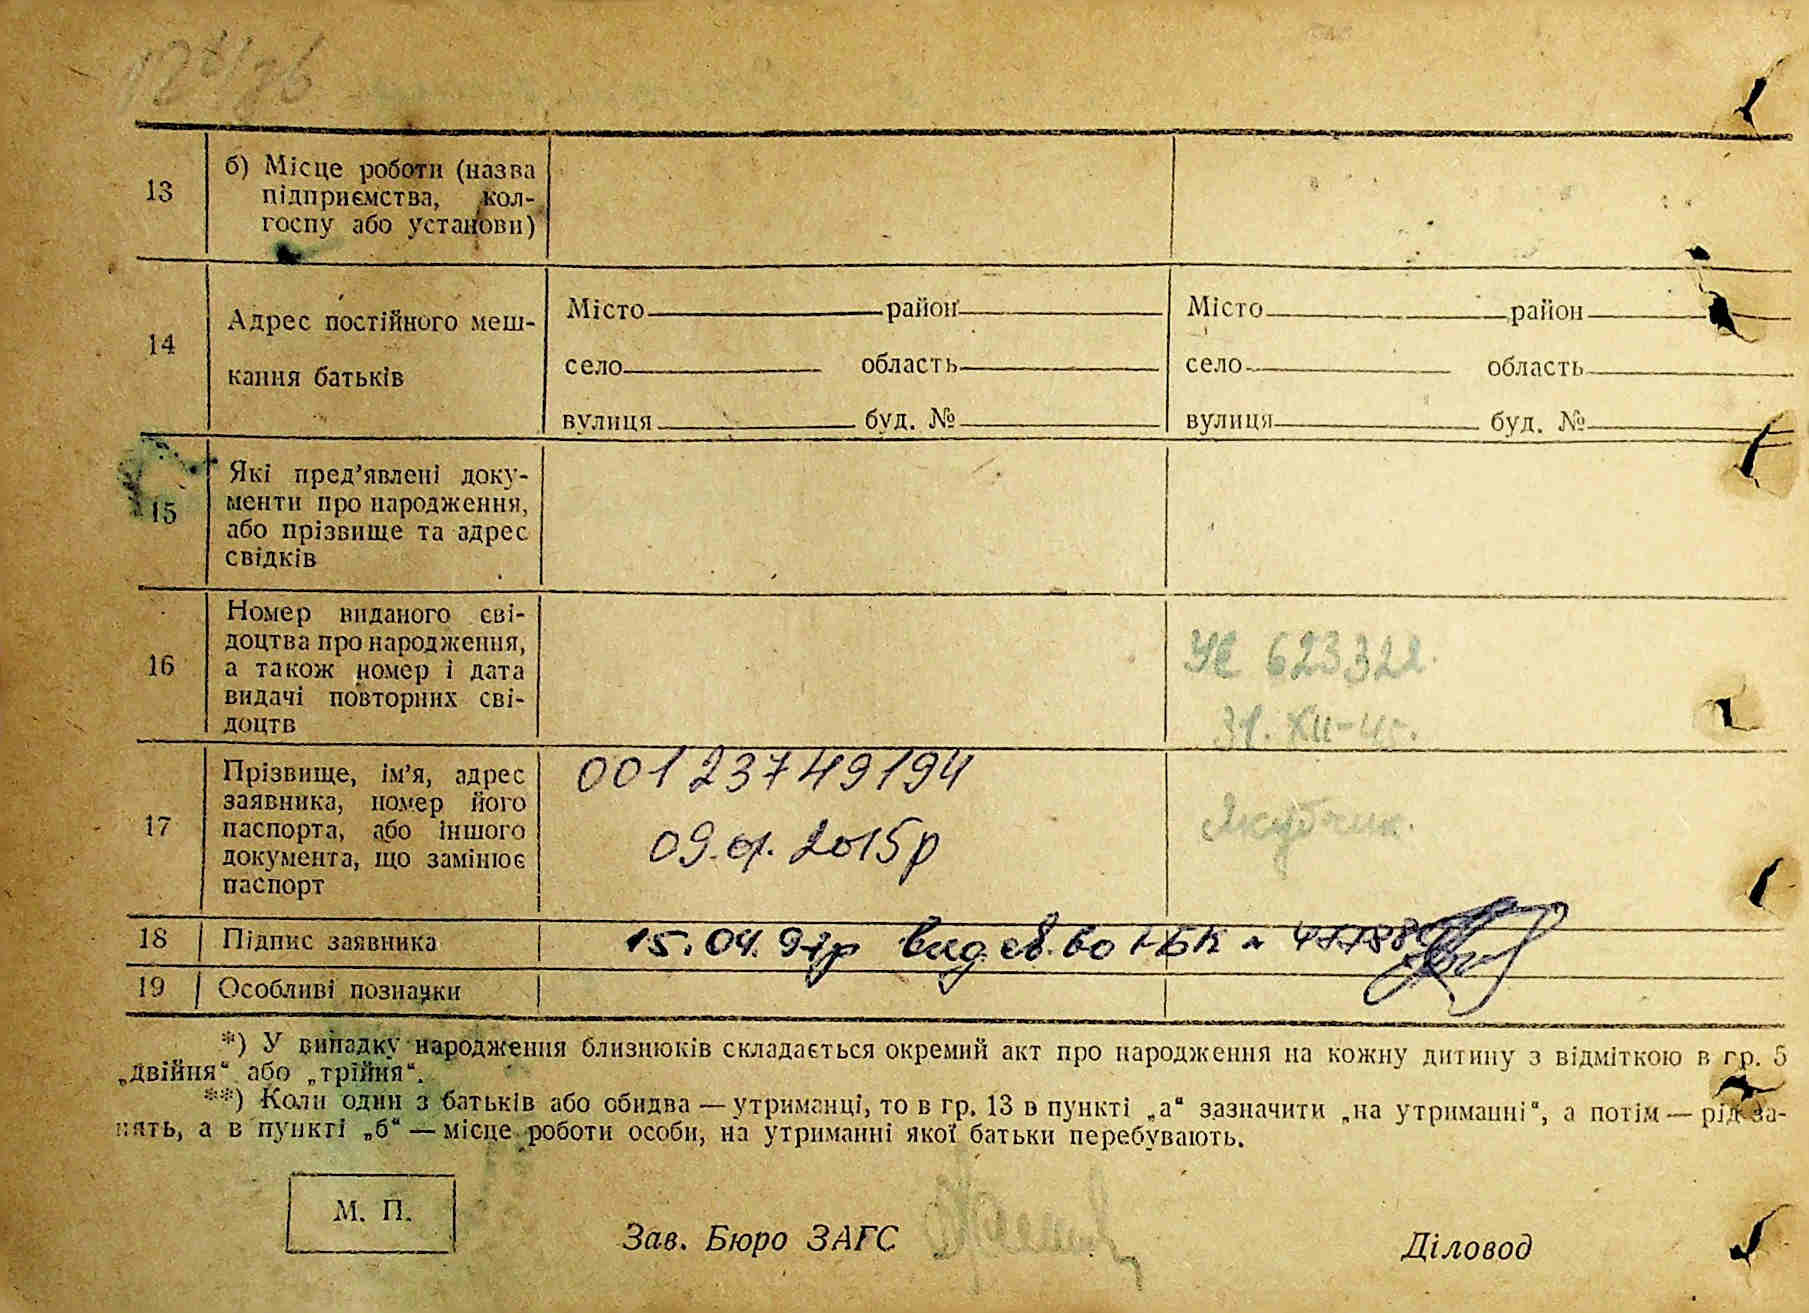 13
б) Місце роботи (назва
підприємства, кол-
госпу або установи)
14
Адрес постійного меш-
кання батьків
Місто район
село область
вулиця буд. №
Місто район
село область
вулиця буд. №
15
Які пред’явлені доку-
менти про народження,
або прізвище та адрес
свідків
16
Номер виданого сві-
доцтва про народження,
а також номер і дата
видачі повторних сві-
доцтв
623322
31. XII-
17
Прізвище, ім’я, адрес
заявника, номер його
паспорта, або іншого
документа, що замінює
паспорт
00123749194
09. 2015р
18 Підпис заявника
15.04. р вид. св. во І-БК
19 Особливі познауки
*) У випадку народження близнюків складається окремий акт про народження на кожну дитину з відміткою в гр. 5
„двійня“ або „трійня“.
**) Коли один з батьків або обидва — утриманці, то в гр. 13 в пункті „а“ зазначити „на утриманні“, а потім — рід за-
нять, а в пункті „б“ — місце роботи особи, на утриманні якої батьки перебувають.
М. П.
Зав. Бюро ЗАГС
Діловод